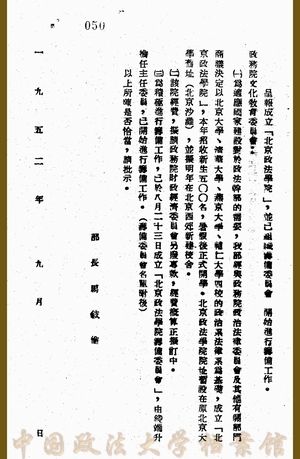 050
呈報成立「北京政法學院」，並已組成籌備委員會 開始進行籌備工作。
政務院文化敎育委員會：
㈠爲適應國家建設對於政法幹部的需要，我部經與政務院政治法律委員會及其他有關部門
商議决定以北京大學、淸華大學、燕京大學、輔仁大學四校的政治系法律系爲基礎，成立「北
京政法學院」，本年招收新生五〇〇名，暑假後正式開學。北京政法學院院址暫設在原北京大
學舊址（北京沙灘），並擬明年在北京西郊新建校舍。
㈡該院經費，擬請政務院財政經濟委員會另撥專款，經費槪算正擬訂中。
㈢爲積極進行籌備工作，已於八月二十三日成立「北京政法學院籌備委員會」，由錢端升
擔任主任委員，已開始進行籌備工作。（籌備委員會名單附後）
以上所陳是否恰當，請批示。
部長馬敘倫
一九五二年 九月 日
中国政法大学档案馆